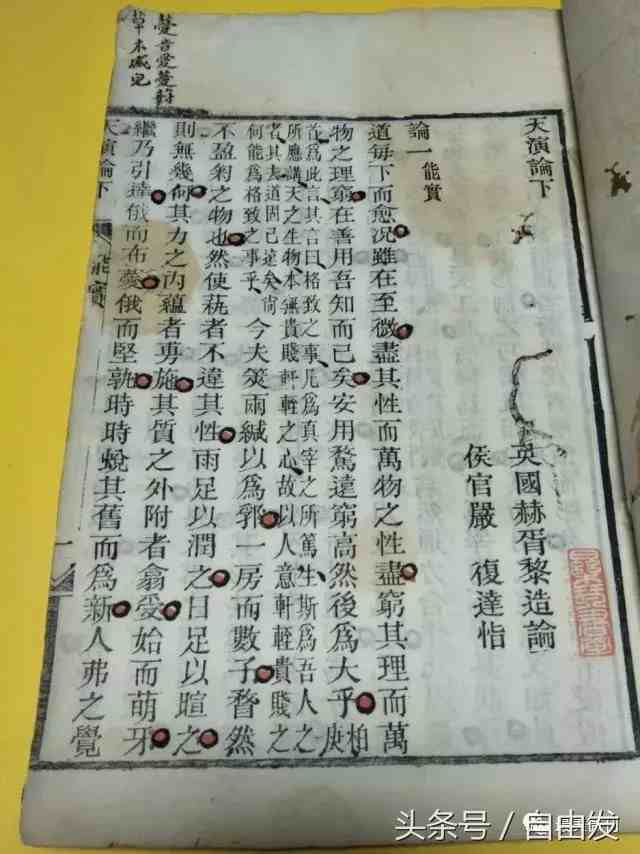 天演論下
英國赫胥黎造論
侯官嚴 復達恉
論一 能實
道每下而愈況雖在至微盡其性而萬物之性盡窮其理而萬
物之理窮在善用吾知而已矣安用騖遠窮高然後為大乎柏庚
首為此言其言曰格致之事凡為真宰之所篤生斯為吾人之
所應講天之生物本無貴賤軒輊之心故以人意軒輊貴賤之
者其去道固已遠矣尚
何能為格致之事乎 今夫筴兩緘以為郛一房而數子瞀然
不盈匊之物也然使蓺者不違其性雨足以潤之日足以暄之
則無幾何其力之內蘊者旉施其質之外附者翕受始而萌牙
繼乃引達俄而布薆俄而堅孰時時蛻其舊而為新人弗之覺
天演論下 能實 一
薆音愛薆蔚
草木盛皃
头条号 / 自由发